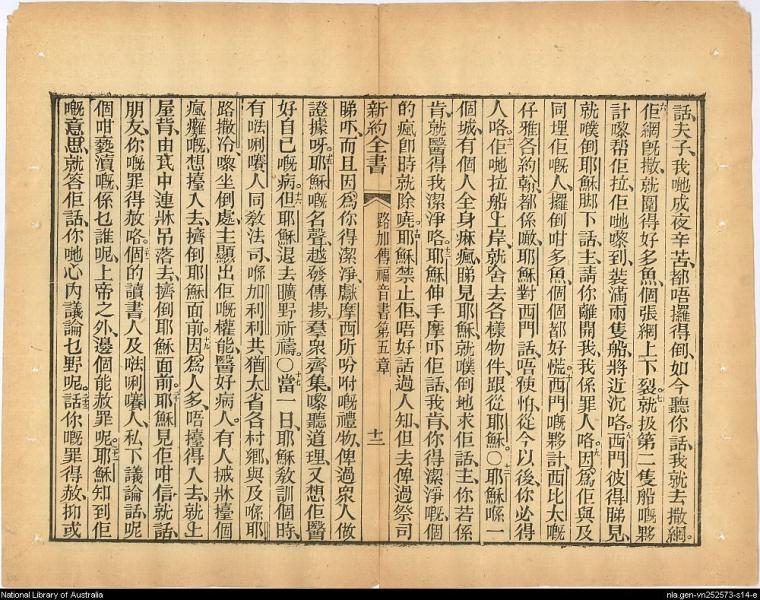 話、夫子、我哋成夜辛苦、都唔攞得倒、如今聽你話、我就去撒網。
佢網旣撒、就圍得好多魚、個張網上下裂。就扱第二隻船嘅夥
計嚟幫佢拉、佢哋嚟到裝滿兩隻船、將近沉咯。西門彼得睇見、
就噗倒耶穌脚下話、主請你離開我、我係罪人咯。因爲佢與及
同埋佢嘅人、攞倒咁多魚、個個都好慌。西門嘅夥計、西比太嘅
仔雅各約翰都係噉、耶穌對西門話、唔使怕、從今以後、你必得
人咯。佢哋拉船上岸、就舍去各樣物件、跟從耶穌。〇耶穌喺一
個城、有個人全身痳瘋、睇見耶穌、就噗倒地求佢話、主你若係
肯、就醫得我潔淨咯。耶穌伸手摩吓佢話、我肯、你得潔淨、嘅個
的瘋卽時就除曉。耶穌禁止佢唔好話過人知、但去俾過祭司
新約全書
路加傳福音書第五章
十二
睇吓、而且因爲你得潔淨、獻摩西所吩咐嘅禮物、俾過衆人做
證據呀。耶穌嘅名聲、越發傳揚、羣衆齊集嚟聽道理、又想佢醫
好自己嘅病。但耶穌退去曠野祈禱。〇當一日、耶穌敎訓個時、
有㗎唎㘔人同敎法司、喺加利利共猶太省各村鄉與及喺耶
路撒冷嚟、坐倒處、主顯出佢嘅權能、醫好病人。有人搣牀擡個
瘋癱嘅、想擡人去、擠倒耶穌面前。因爲人多、唔擡得人去、就上
屋背、由瓦中連牀吊落去、擠倒耶穌面前。耶穌見佢咁信、就話、
朋友、你嘅罪得赦咯。個的讀書人及㗎唎㘔人、私下議論話、呢
個咁褻瀆嘅、係乜誰呢、上帝之外、邊個能赦罪呢。耶穌知到佢
嘅意思、就答佢話、你哋心內議論乜野呢。話你嘅罪得赦、抑或
National Library of Australia
nla.gen-vn252573-s14-e